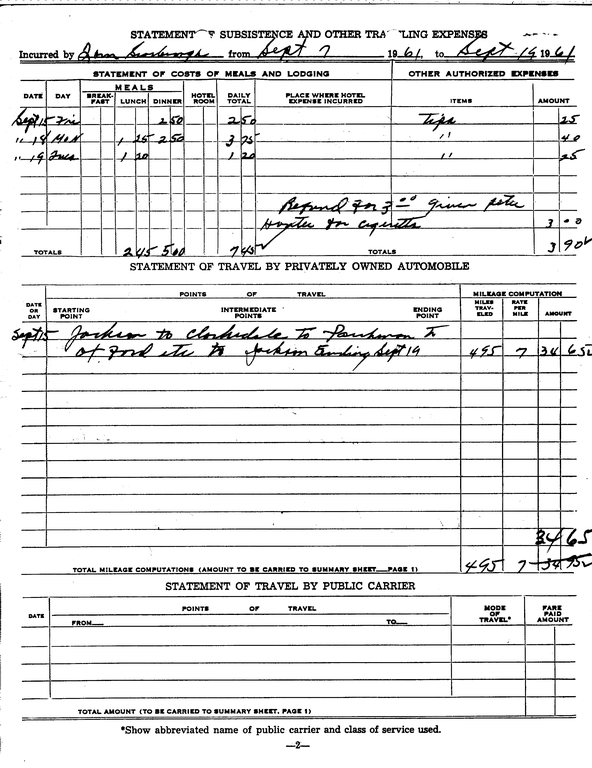 STATEMENT SUBSISTENCE AND OTHER TRA LING EXPENSES
Incurred by from Sept 7 1961, to Sept 19 1961
STATEMENT OF COSTS OF MEALS AND LODGING OTHER AUTHORIZED EXPENSES
DATE DAY MEALS BREAK-FAST LUNCH DINNER HOTEL ROOM DAILY TOTAL PLACE WHERE HOTEL EXPENSE INCURRED ITEMS AMOUNT
Sept 15 Fri 2 50 2 50 tips 25
" 18 Mon 1 25 2 50 3 75 " 40
" 19 Tues 1 20 1 20 " 25
Refund for 3.00 given
for 3 00
TOTALS 2 45 5 00 7 45 TOTALS 3 90
STATEMENT OF TRAVEL BY PRIVATELY OWNED AUTOMOBILE
DATE OR DAY POINTS OF TRAVEL MILEAGE COMPUTATION
STARTING POINT INTERMEDIATE POINTS ENDING POINT MILES TRAV-ELED RATE PER MILE AMOUNT
Sept 15 Jackson to to to
etc to Jackson Ending Sept 19 495 7 34 65
34 65
TOTAL MILEAGE COMPUTATIONS (AMOUNT TO BE CARRIED TO SUMMARY SHEET PAGE 1) 495 7 34 95
STATEMENT OF TRAVEL BY PUBLIC CARRIER
DATE POINTS OF TRAVEL MODE OF TRAVEL* FARE PAID AMOUNT
FROM TO
TOTAL AMOUNT (TO BE CARRIED TO SUMMARY SHEET, PAGE 1)
*Show abbreviated name of public carrier and class of service used.
—2—